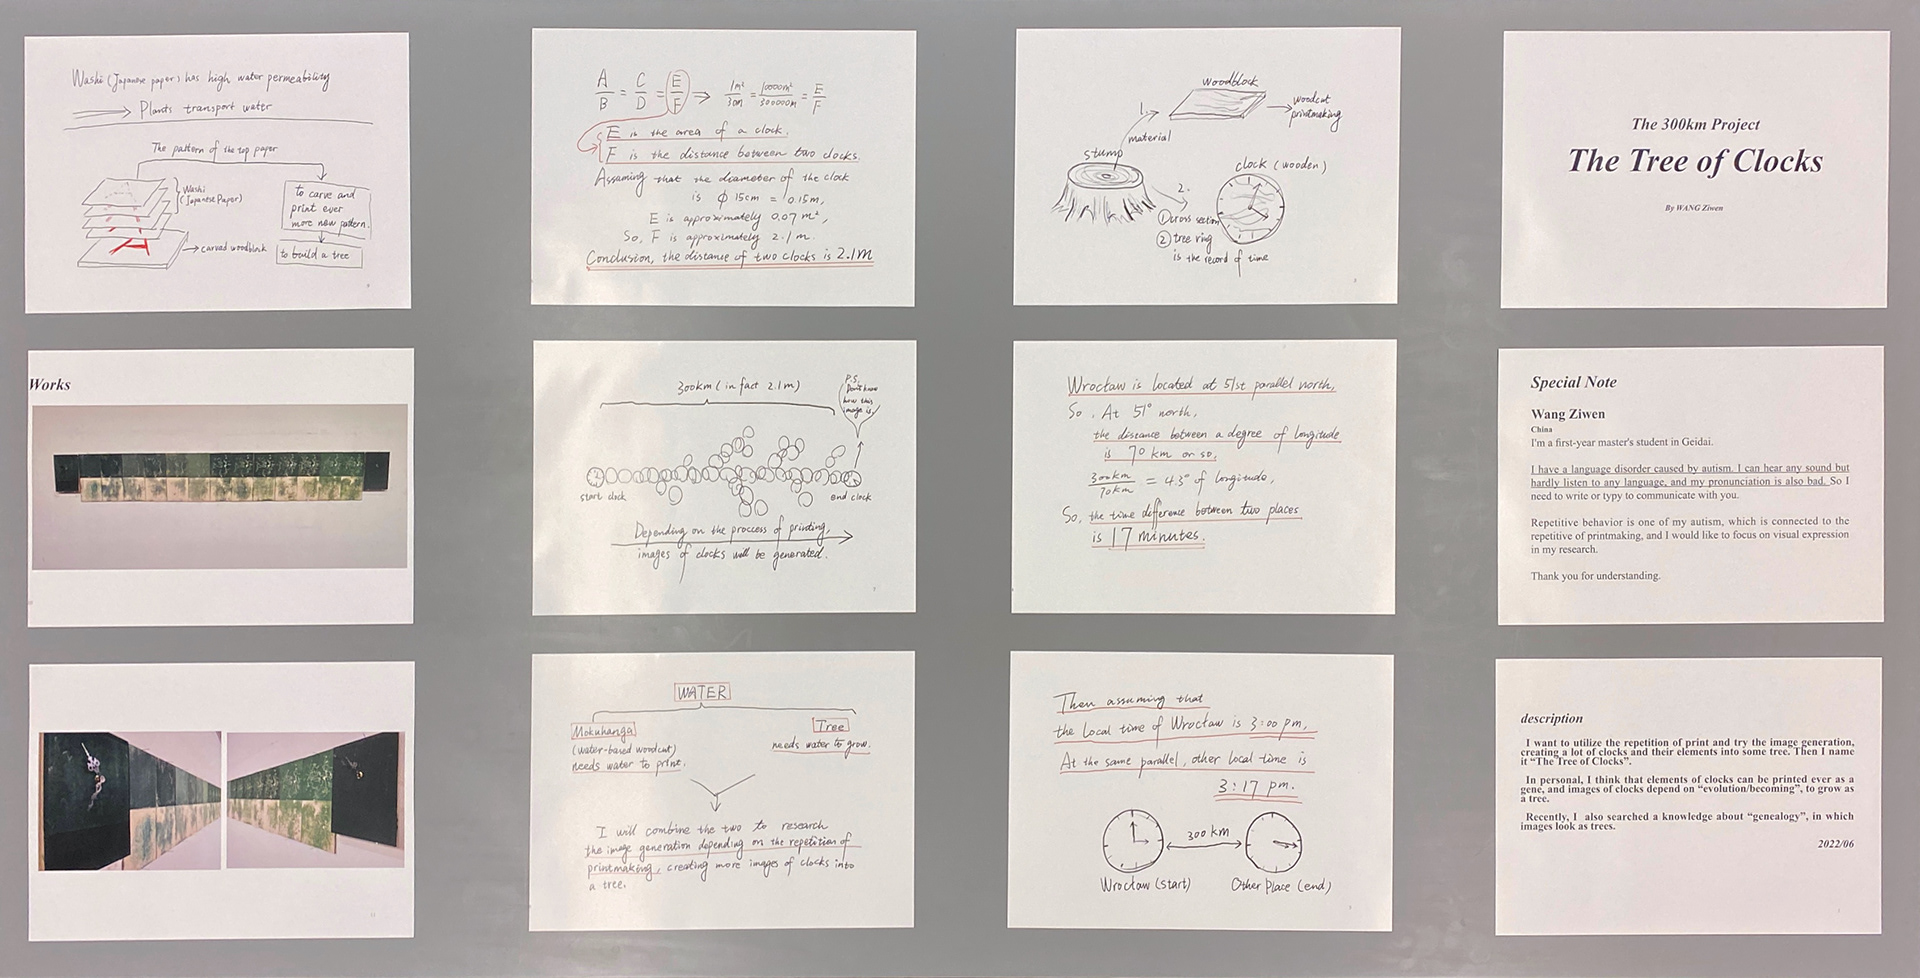 Washi (Japanese paper) has high water permeability
Plants transport water
The pattern of the top paper
Washi
(Japanese Paper)
carved woodblock
to carve and
print ever
more new pattern.
to build a tree
A/B = C/D = E/F ⇒ 1m²/30m = 10000m²/300000m = E/F
E is the area of a clock.
F is the distance between two clocks.
Assuming that the diameter of the clock
is ϕ 15cm = 0.15m,
E is approximately 0.07 m²,
So, F is approximately 2.1 m.
Conclusion, the distance of two clocks is 2.1m
woodblock
1.
woodcut
printmaking
material
stump
clock (wooden)
2.
① cross section
② tree ring
is the record of time
The 300km Project
The Tree of Clocks
By WANG Ziwen
Works
300km (in fact 2.1m)
P.S.
Don't know
how this
image is
start clock
end clock
Depending on the proccess of printing,
images of clocks will be generated.
Wrocław is located at 51st parallel north,
So, At 51° north,
the distance between a degree of longitude
is 70 km or so,
300km/70km = 4.3° of longitude,
So, the time difference between two places
is 17 minutes.
Special Note
Wang Ziwen
China
I'm a first-year master's student in Geidai.
I have a language disorder caused by autism. I can hear any sound but
hardly listen to any language, and my pronunciation is also bad. So I
need to write or typy to communicate with you.
Repetitive behavior is one of my autism, which is connected to the
repetitive of printmaking, and I would like to focus on visual expression
in my research.
Thank you for understanding.
WATER
Mokuhanga
(water-based woodcut)
needs water to print.
Tree
needs water to grow.
I will combine the two to research
the image generation depending on the repetition of
printmaking, creating more images of clocks into
a tree.
Then assuming that
the local time of Wrocław is 3:00 pm,
At the same parallel, other local time is
3:17 pm.
300 km
Wrocław (start)
Other Place (end)
description
I want to utilize the repetition of print and try the image generation,
creating a lot of clocks and their elements into some tree. Then I name
it “The Tree of Clocks”.
In personal, I think that elements of clocks can be printed ever as a
gene, and images of clocks depend on “evolution/becoming”, to grow as
a tree.
Recently, I also searched a knowledge about “genealogy”, in which
images look as trees.
2022/06